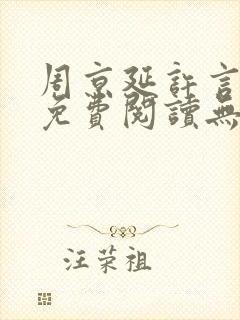 周京延許言
免費閱讀無
汪荣祖